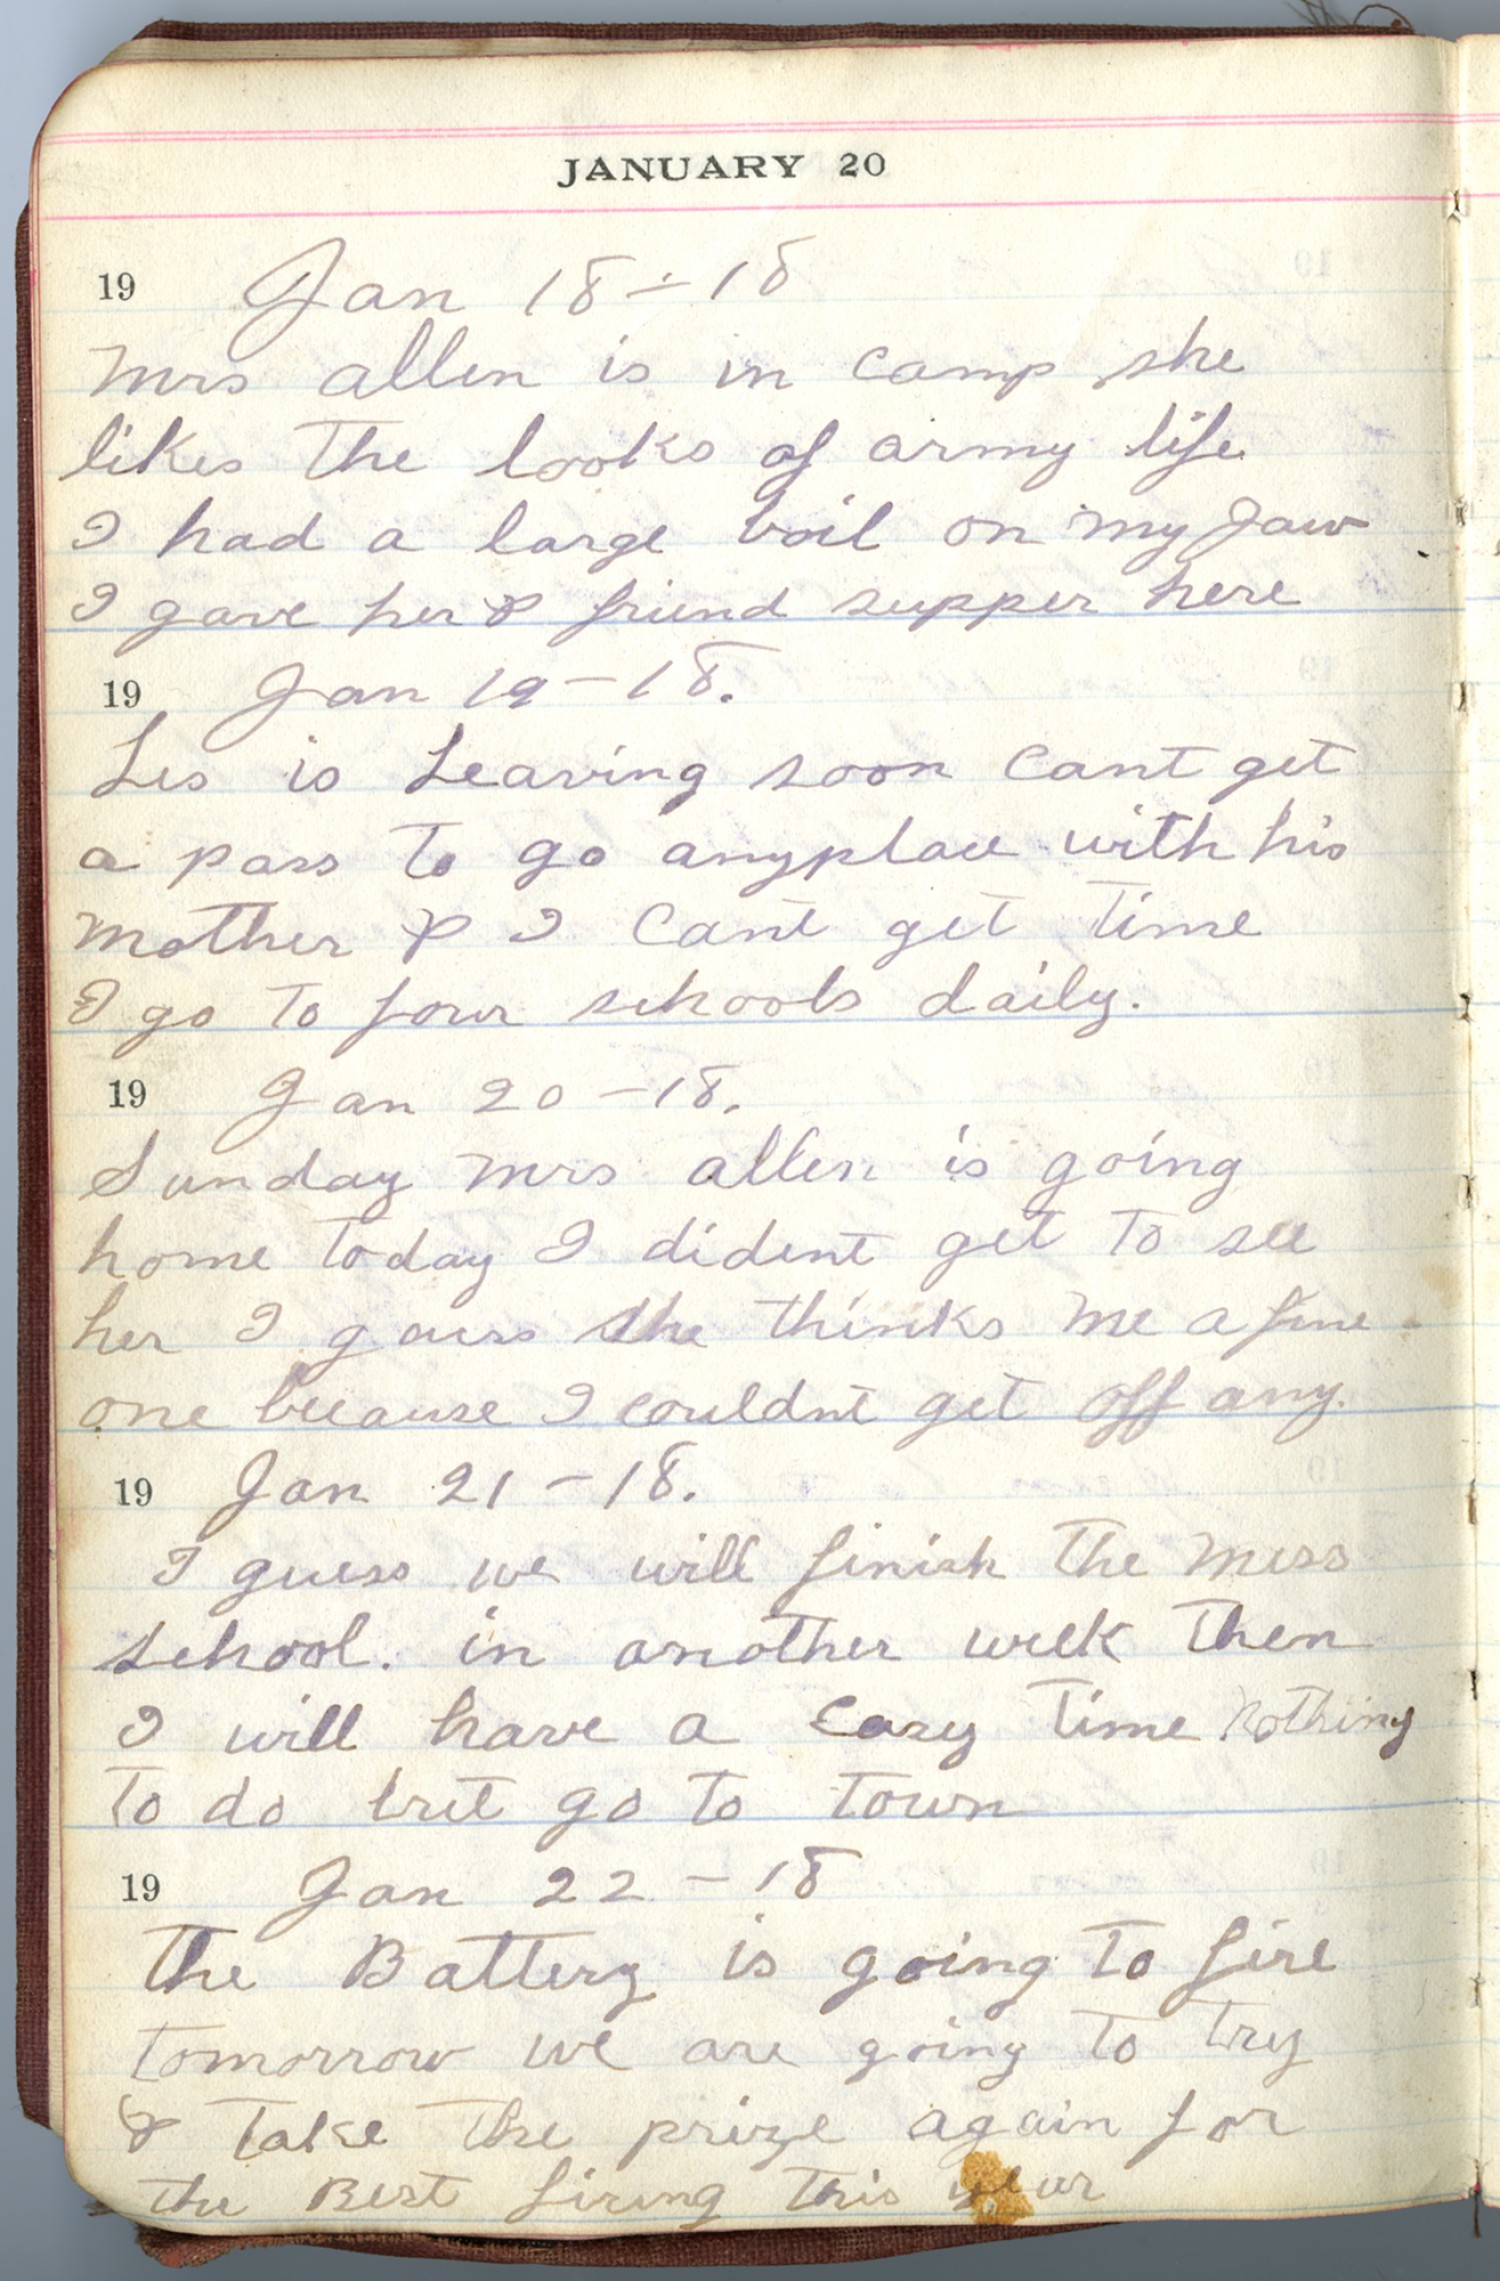 JANUARY 20
19 Jan 18-18
Mrs allen is in camp she
likes the looks of army life
I had a large boil on my Jaw
I gave her & friend supper here
19 Jan 19-18.
Les is Leaving soon Cant get
a pass to go anyplace with his
mother & I Cant get time
I go to four schools daily.
19 Jan 20-18.
Sunday Mrs allen is going
home today I dident get to see
her I guess she thinks me a fine
one because I couldnt get off any.
19 Jan 21-18.
I guess we will finish the Mess
School. in another week then
I will have a Easy time Nothing
to do but go to town
19 Jan 22-18
the Battery is going to fire
tomorrow we are going to try
& take the prize again for
the Best firing this year